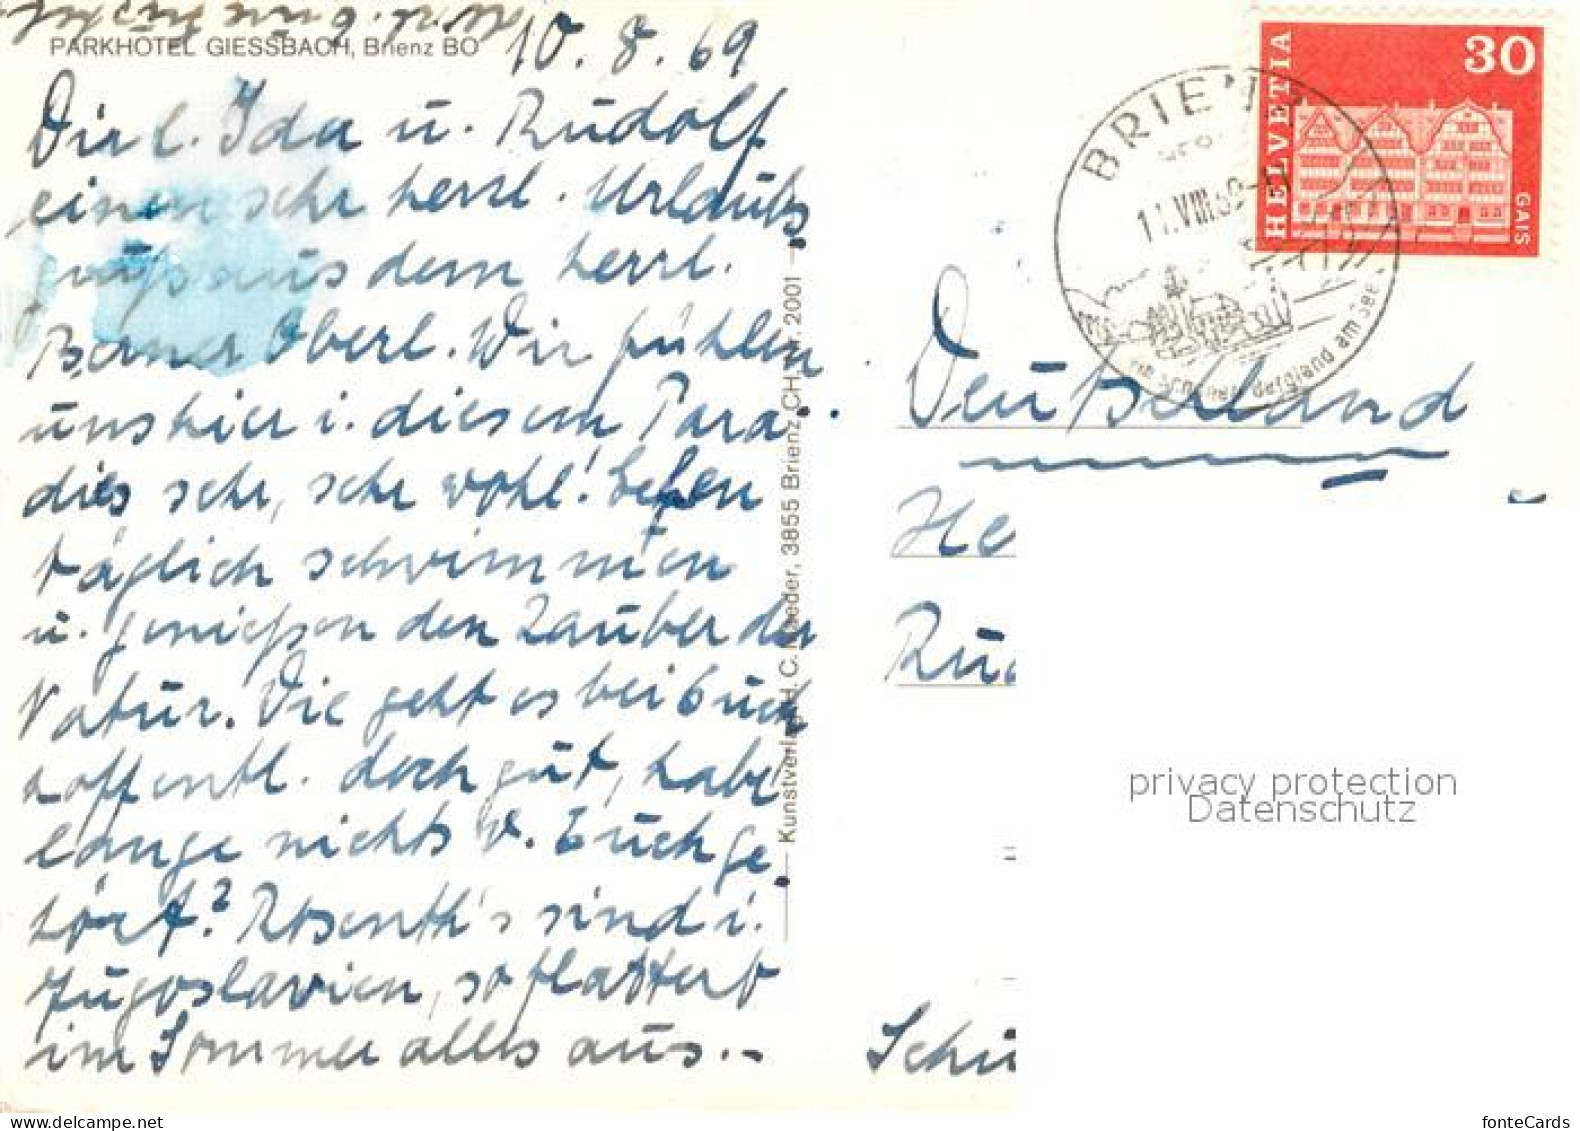 PARKHOTEL GIESSBACH, Brienz BO
10.8.69
Dir l. Ida u. Rudolf
einen sehr herrl. Urlaubs
gruß aus dem herrl.
Berner Oberl. Wir fühlen
uns hier i. diesem Para-
dies sehr, sehr wohl! Gehen
täglich schwimmen
u. genießen den Zauber der
Natur. Wie geht es bei Euch
hoffentl. doch gut, habe
lange nichts v. Euch ge
hört? Rosenth's sind i.
Jugoslavien, so flattert
im Sommer alles aus.-
Kunstverlag H. C. Maeder, 3855 Brienz CH, 2001
HELVETIA
30
GAIS
BRIENZ
11.VIII.69
Bergland am See
Deutschland
He
Rud
Schü
privacy protection
Datenschutz
fonteCards